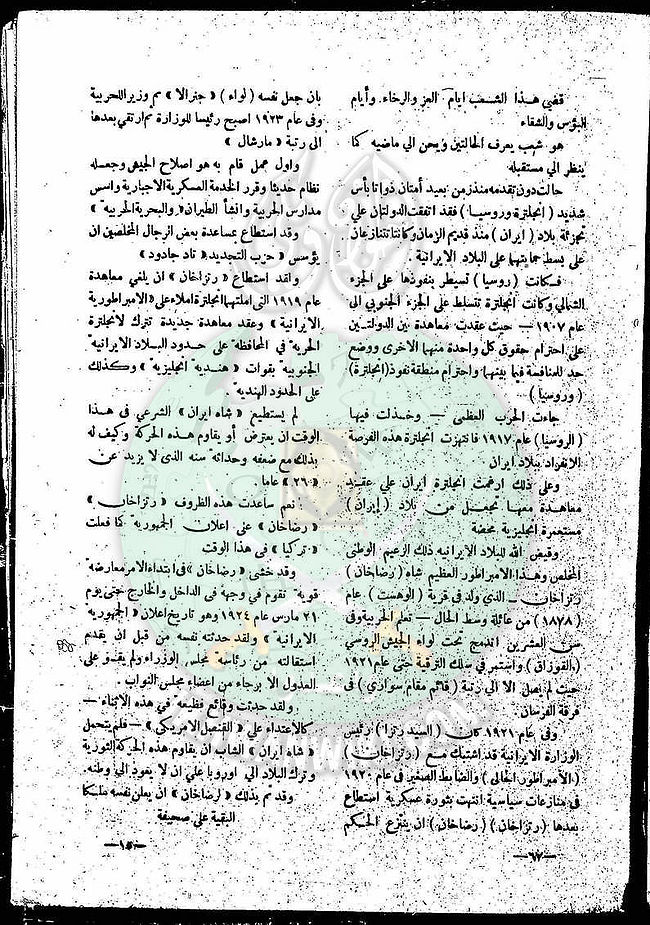 قضي هذا الشعب ايام العز والرخاء وأيام
البؤس والشقاء
هو شعب يعرف الحالتين ويحن الي ماضيه كما
ينظر الي مستقبله
حالت دون تقدمه منذ زمن بعيد أمتان ذواتا بأس
شديد (انجلترة وروسيا) فقد اتفقت الدولتان علي
تجزئة بلاد (ايران) منذ قديم الزمان وكانتا تتنازعان
على بسط حمايتهما على البلاد الايرانية.
فكانت (روسيا) تسيطر بنفوذها على الجزء
الشمالي وكانت انجلترة تتسلط على الجزء الجنوبي الى
عام ١٩٠٧ — حيث عقدت معاهدة بين الدولتين
على احترام حقوق كل واحدة منهما الاخرى ووضع
حد للمنافسة فيما بينهما واحترام منطقة نفوذ (انجلترة)
(وروسيا)
جاءت الحرب العظمى — وخذلت فيها
(الروسيا) عام ١٩١٧ فانتهزت انجلترة هذه الفرصة
الانفراد ببلاد ايران
وعلي ذلك ارغمت انجلترة ايران علي عقد
معاهدة معها تجعل من بلاد (إيران)
مستعمرة انجليزية محضة
وقيض الله للبلاد الايرانيه ذلك الزعيم الوطني
المخلص وهذا الامبراطور العظيم شاه (رضاخان)
رتزاخان — الذي ولد في قرية (الوهست) عام
(١٨٧٨) من عائلة وسط الحال — تعلم الحربية وفي
سن العشرين اندمج تحت لواء الجيش الروسي
(القوزاق) واستمر في سلك الترقية حتى عام ١٩٢١
حيث لم يصل الا الي رتبة (قائم مقام سواري) فى
فرقة الفرسان
وفى عام ١٩٢١ كان (السيد رتزا) رئيس
الوزارة الايرانية قد اشتبك مع (رتزاخان)
(الأمبراطور الحالى) والضابط الصغير فى عام ١٩٢٠
فى منازعات سياسية انتهت بثورة عسكرية استطاع
بعدها (رتزاخان) (رضاخان) ان ينتزع الحكم
—٦٧—
بان جعل نفسه (لواء) «جنرالا» ثم وزير اللحربية
وفى عام ١٩٢٣ اصبح رئيسا للوزارة ثم ارتقي بعدها
الى رتبة «مارشال»
واول عمل قام به هو اصلاح الجيش وجعله
نظام حديثا وقرر الخدمة العسكرية الاجبارية واسس
مدارس الحربية وانشأ الطيران «والبحرية الحربية»
وقد استطاع بمساعدة بعض الرجال المخلصين ان
يؤسس «حزب التجديد» تاد جادود»
ولقد استطاع «رتزاخان» ان يلغي معاهدة
عام ١٩١٩ التى املتها انجلترة املاء على «الامبراطورية
الايرانية» وعقد معاهدة جديدة تترك لانجلترة
الحرية في المحافظة على حدود البلاد الايرانية
الجنوبية بقوات «هندية» انجليزية» وكذلك
على الحدود الهنديه.
لم يستطيع «شاه ايران» الشرعي فى هذا
الوقت ان يعترض أو يقاوم هذه الحركة وكيف له
بذلك مع ضعفه وحداثه سنه الذى لا يزيد عن
«٢٦» عاما.
نعم ساعدت هذه الظروف «رتزاخان»
«رضاخان» على اعلان الجمهورية كما فعلت
«تركيا» فى هذا الوقت
وقد خشى «رضاخان» فى ابتداء الامر معارضة
قوية تقوم في وجهه فى الداخل والخارج حتى يوم
٢١ مارس عام ١٩٢٤ وهو تاريخ اعلان «الجمهورية
الايرانيه» ولقد حدثته نفسه من قبل ان يقدم
استقالته من رئاسة مجلس الوزراء ولم يقدو على
العدول الا برجاء من اعضاء مجلس النواب.
ولقد حدثت وقائع فظيعة في هذه الاثناء —
كالاعتداء علي «القنصل الامريكى» — فلم يتحمل
«شاه ايران» الشاب ان يقاوم هذه الحركة الثورية
وترك البلاد الي اوروبا على ان لا يعود الي وطنه.
وقد تم بذلك «لرضاخان» ان يعلن نفسه ملكا
البقية على صحيفة
—١٥—